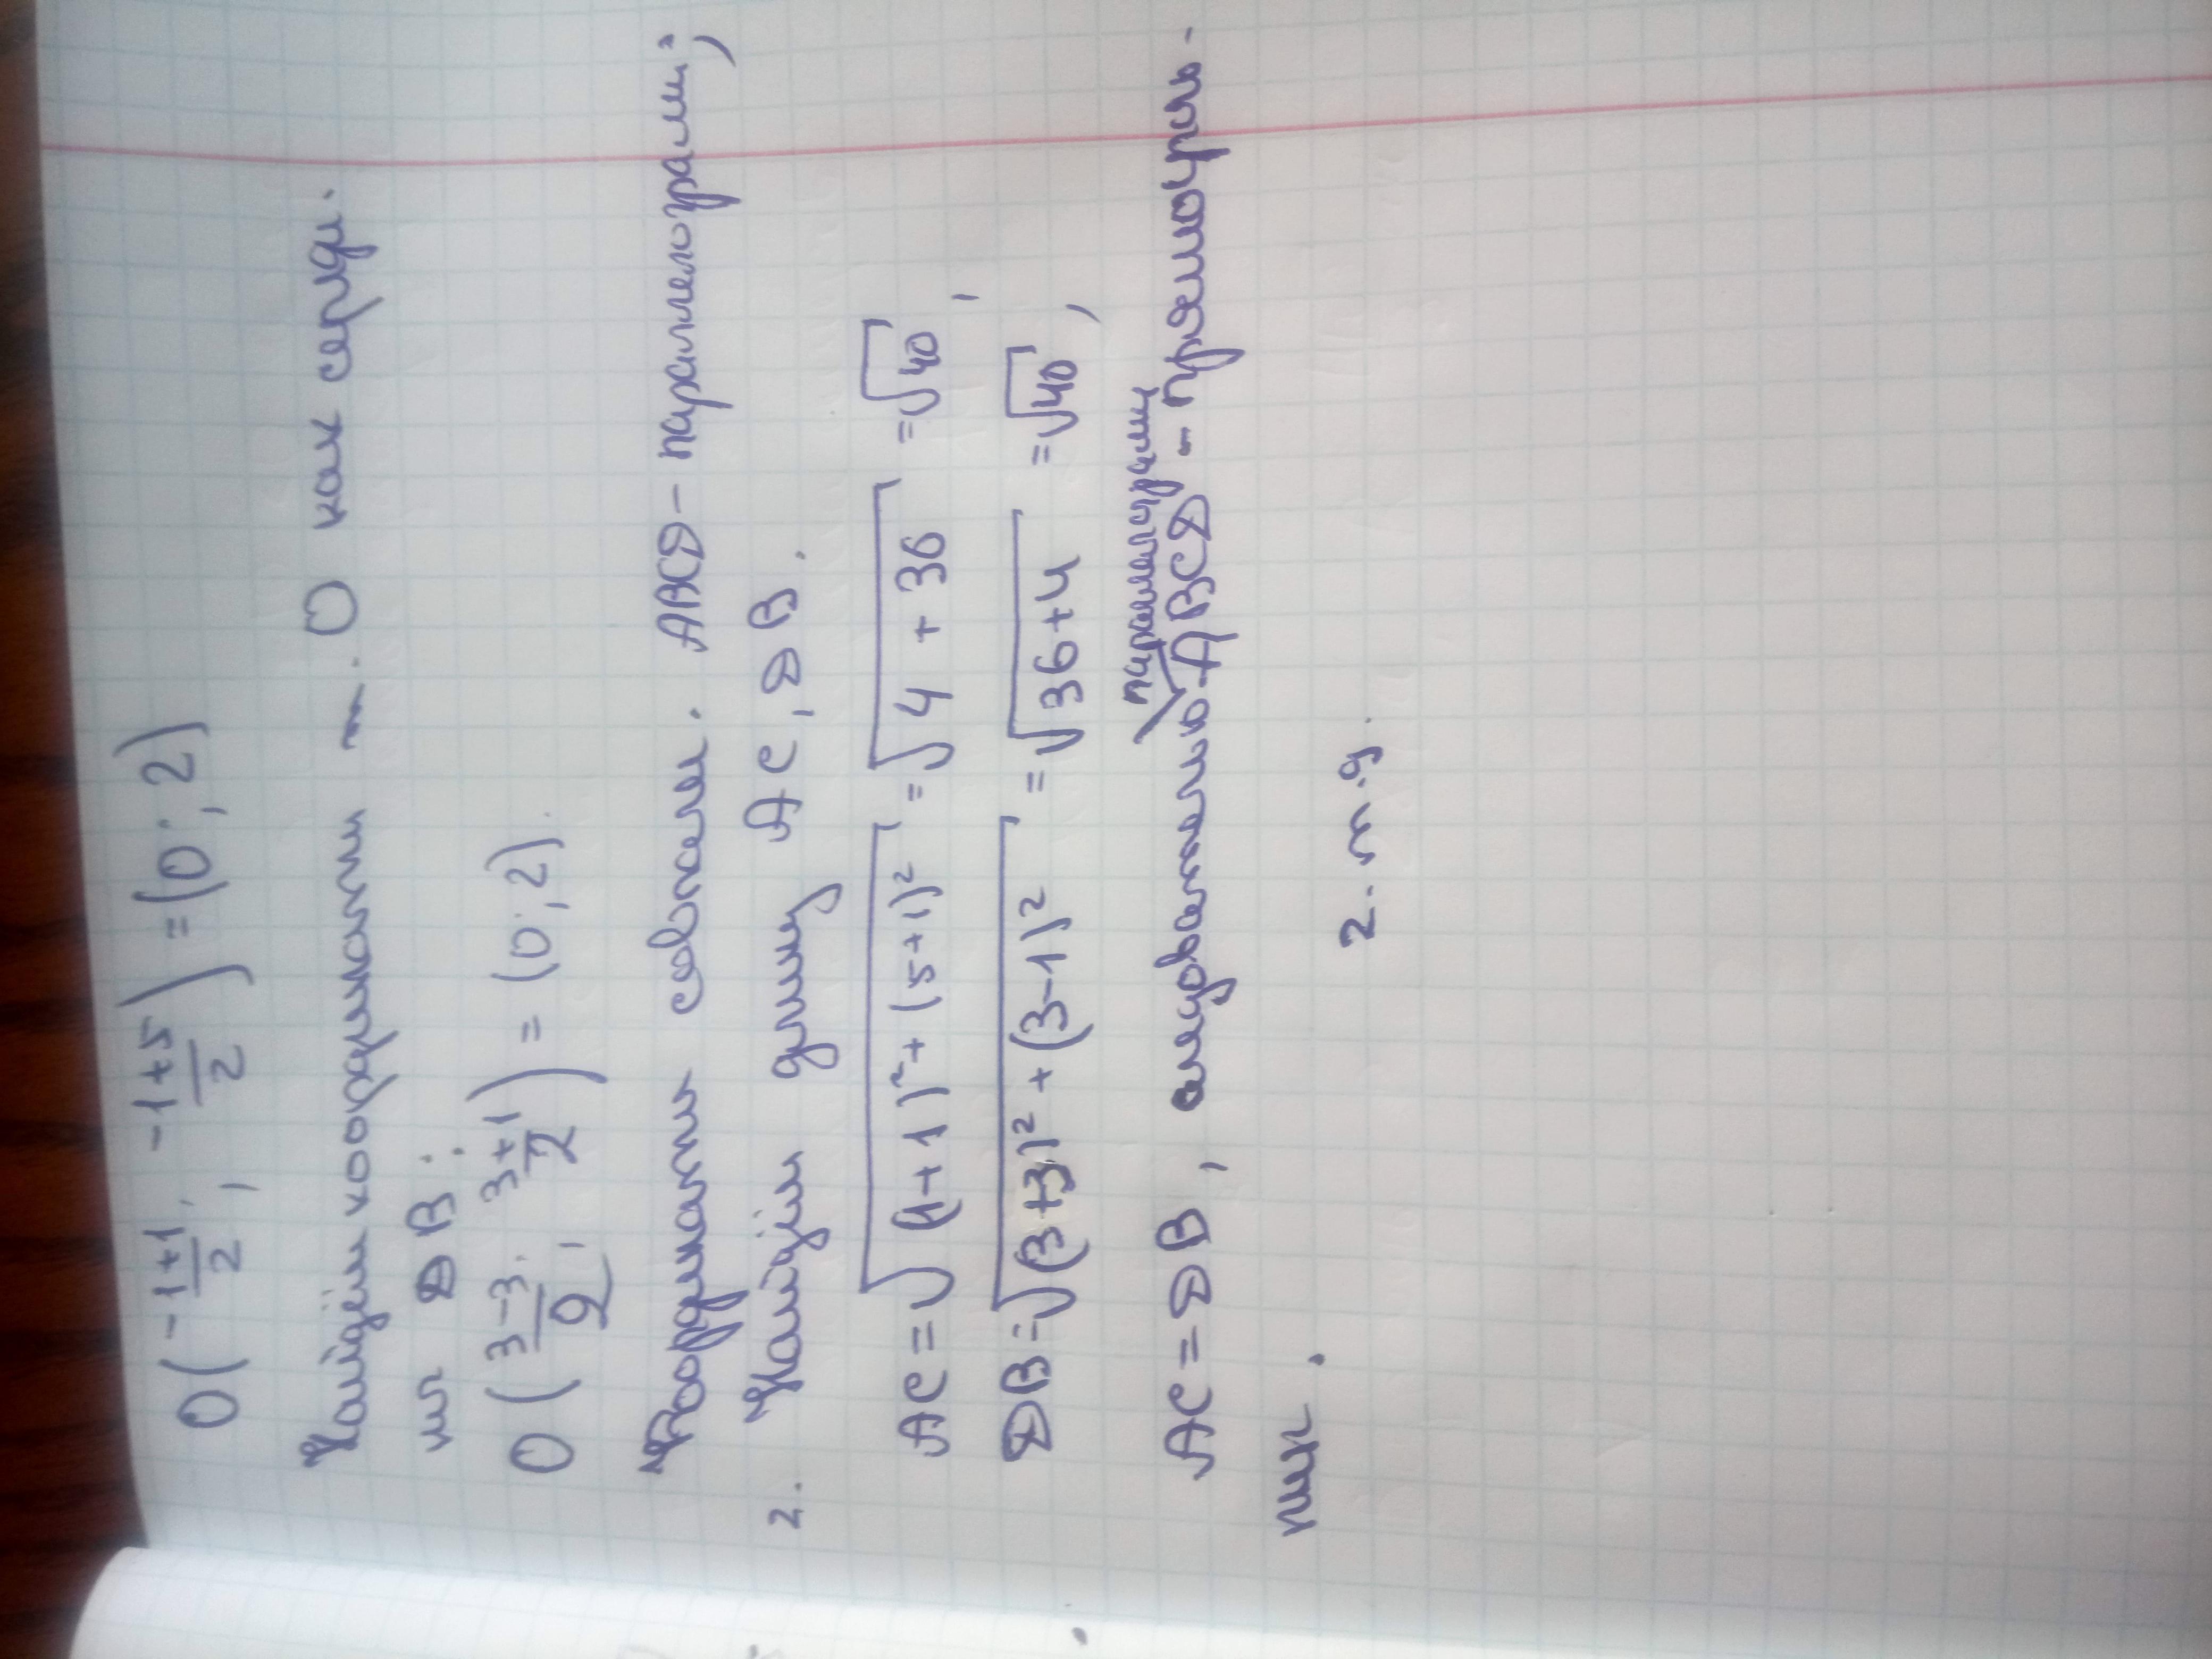 O(-1+1/2; -1+5/2) = (0; 2)
Найдём координаты т. O как середи.
ны DB:
O(3-3/2; 3+1/2) = (0; 2).
Координаты совпали. ABCD - параллелограмм;
2. Найдём длину AC, DB.
AC = √(1+1)² + (5+1)² = √4 + 36 = √40,
DB = √(3+3)² + (3-1)² = √36+4 = √40,
параллелограмм
AC = DB, следовательно ABCD - прямоуголь-
ник.
ч.т.д.